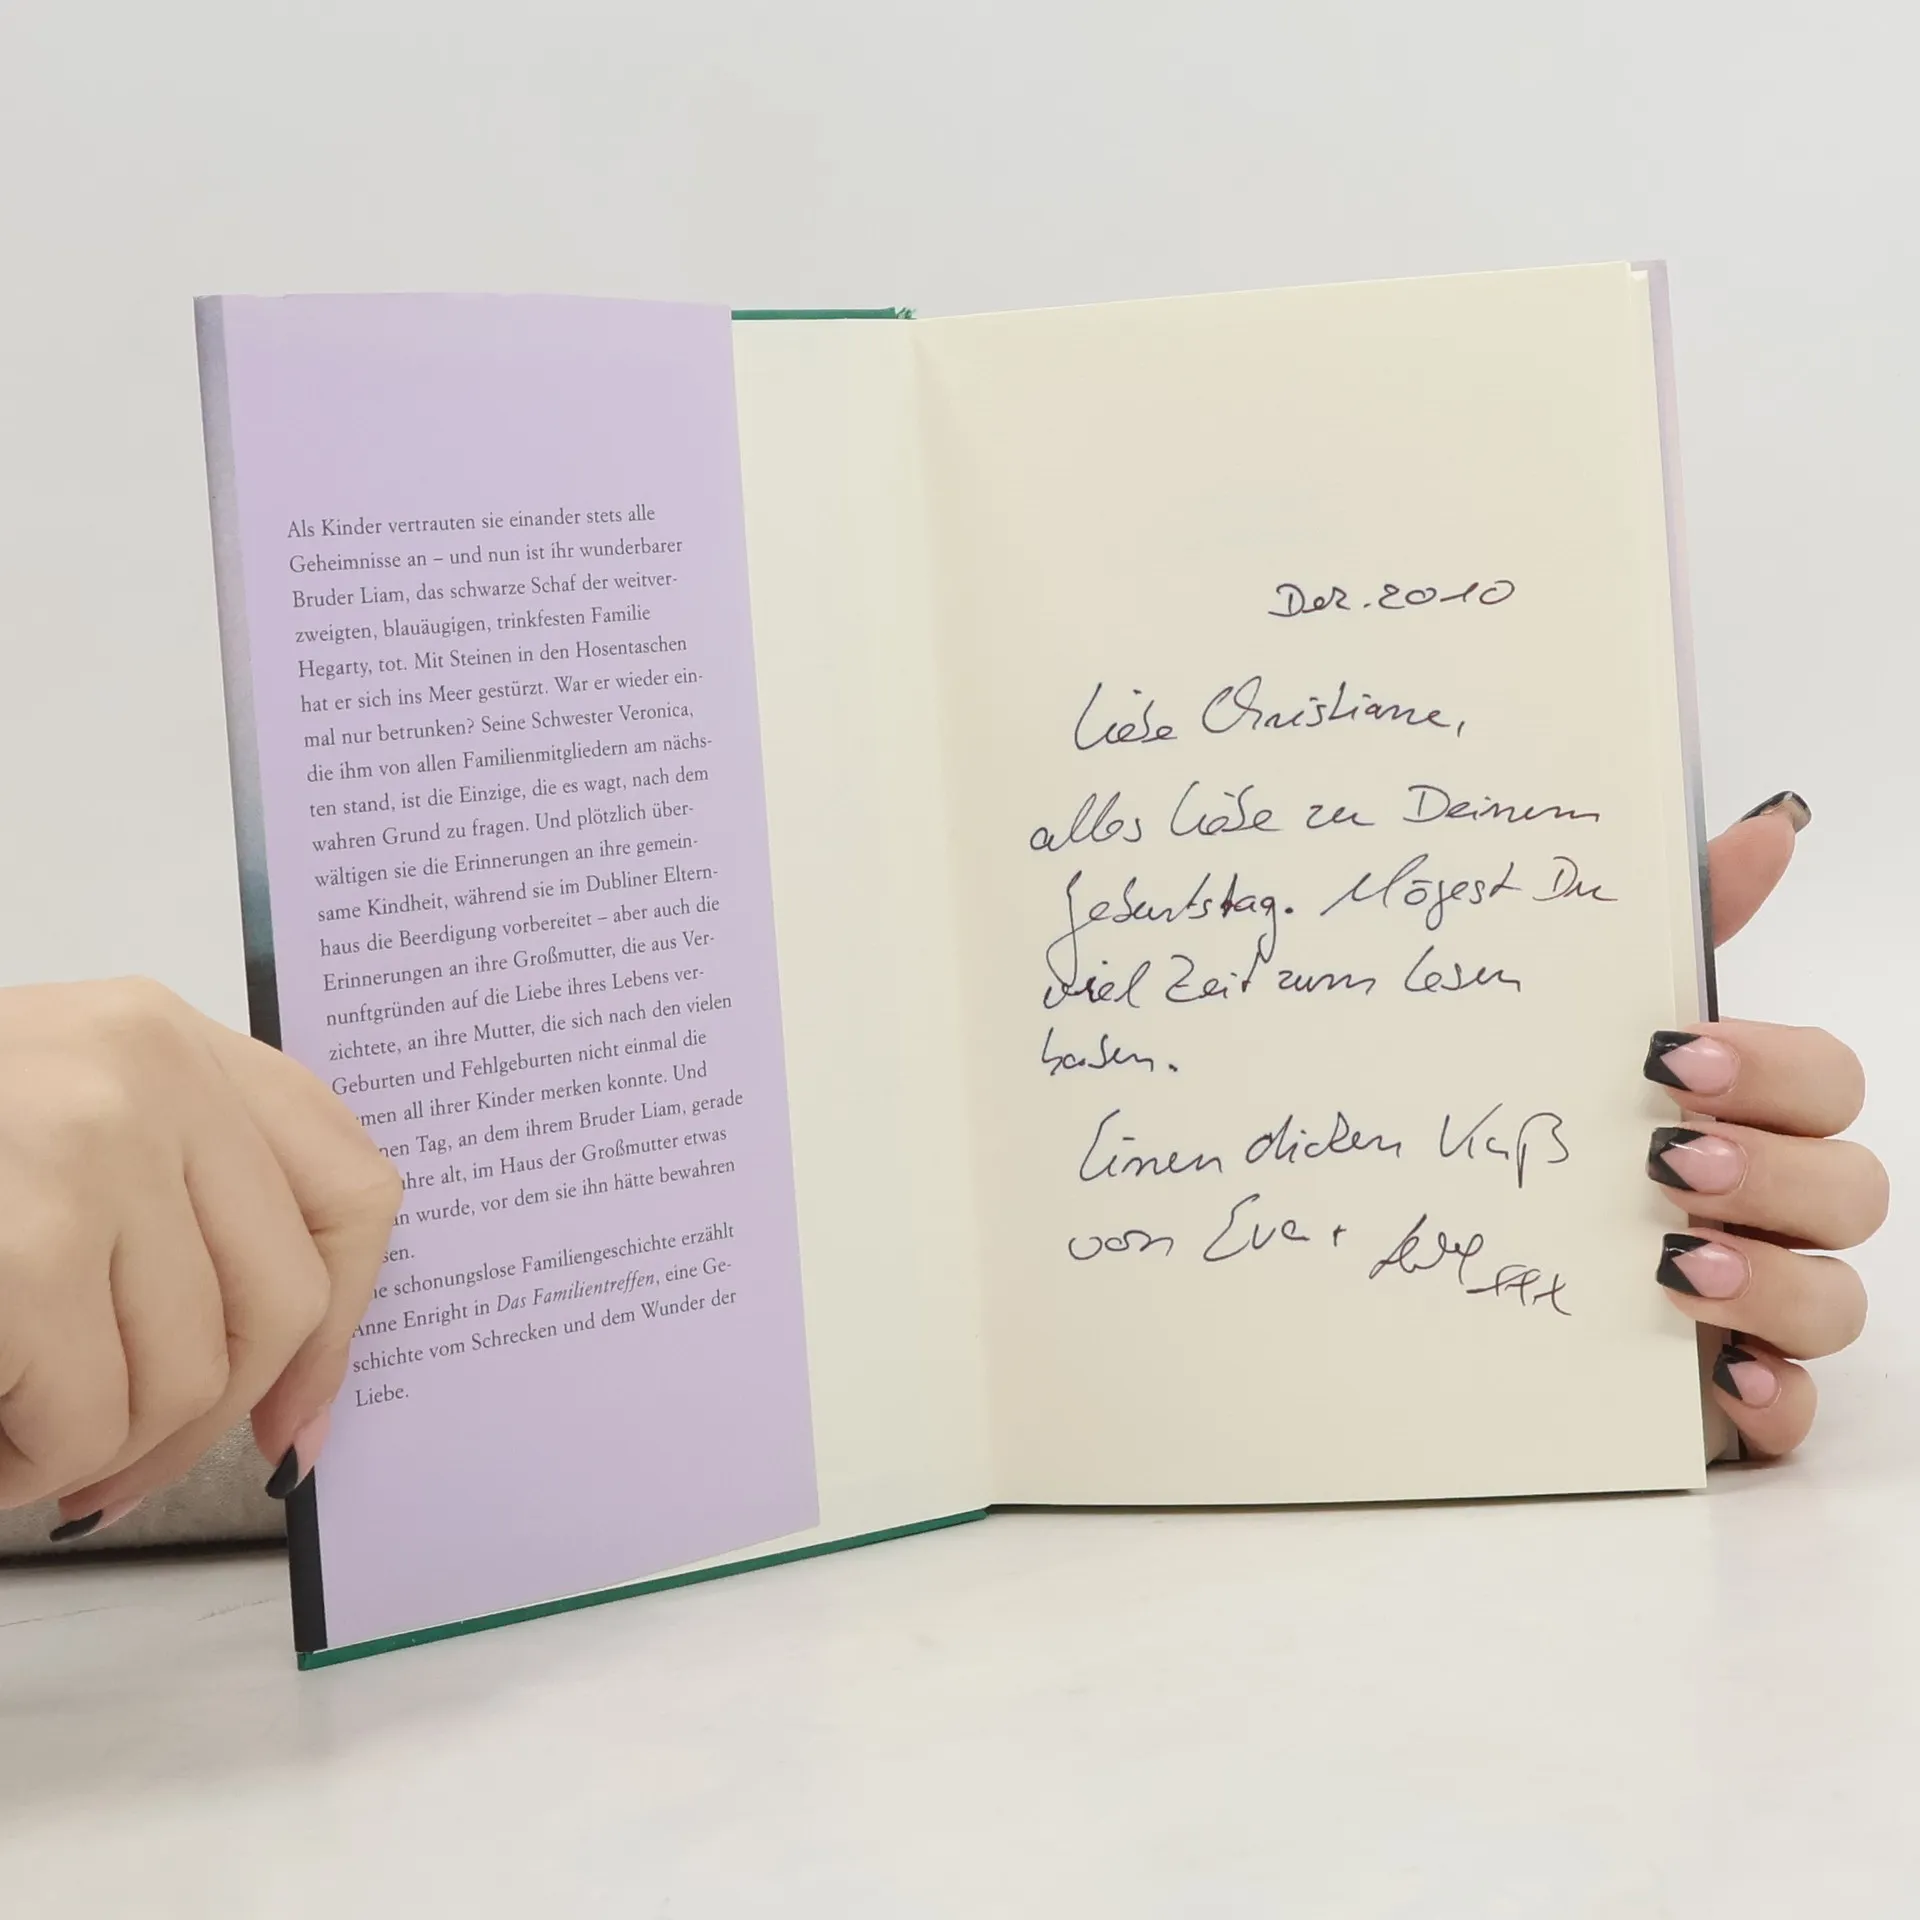 Als Kinder vertrauten sie einander stets alle
Geheimnisse an – und nun ist ihr wunderbarer
Bruder Liam, das schwarze Schaf der weitver-
zweigten, blauäugigen, trinkfesten Familie
Hegarty, tot. Mit Steinen in den Hosentaschen
hat er sich ins Meer gestürzt. War er wieder ein-
mal nur betrunken? Seine Schwester Veronica,
die ihm von allen Familienmitgliedern am nächs-
ten stand, ist die Einzige, die es wagt, nach dem
wahren Grund zu fragen. Und plötzlich über-
wältigen sie die Erinnerungen an ihre gemein-
same Kindheit, während sie im Dubliner Eltern-
haus die Beerdigung vorbereitet – aber auch die
Erinnerungen an ihre Großmutter, die aus Ver-
nunftgründen auf die Liebe ihres Lebens ver-
zichtete, an ihre Mutter, die sich nach den vielen
Geburten und Fehlgeburten nicht einmal die
men all ihrer Kinder merken konnte. Und
nen Tag, an dem ihrem Bruder Liam, gerade
ahre alt, im Haus der Großmutter etwas
an wurde, vor dem sie ihn hätte bewahren
sen.
ne schonungslose Familiengeschichte erzählt
Anne Enright in Das Familientreffen, eine Ge-
schichte vom Schrecken und dem Wunder der
Liebe.
Dez. 2010
Liebe Christiane,
alles Liebe zu Deinem
Geburtstag. Mögest Du
viel Zeit zum Lesen
haben.
Einen dicken Kuß
von Eva +